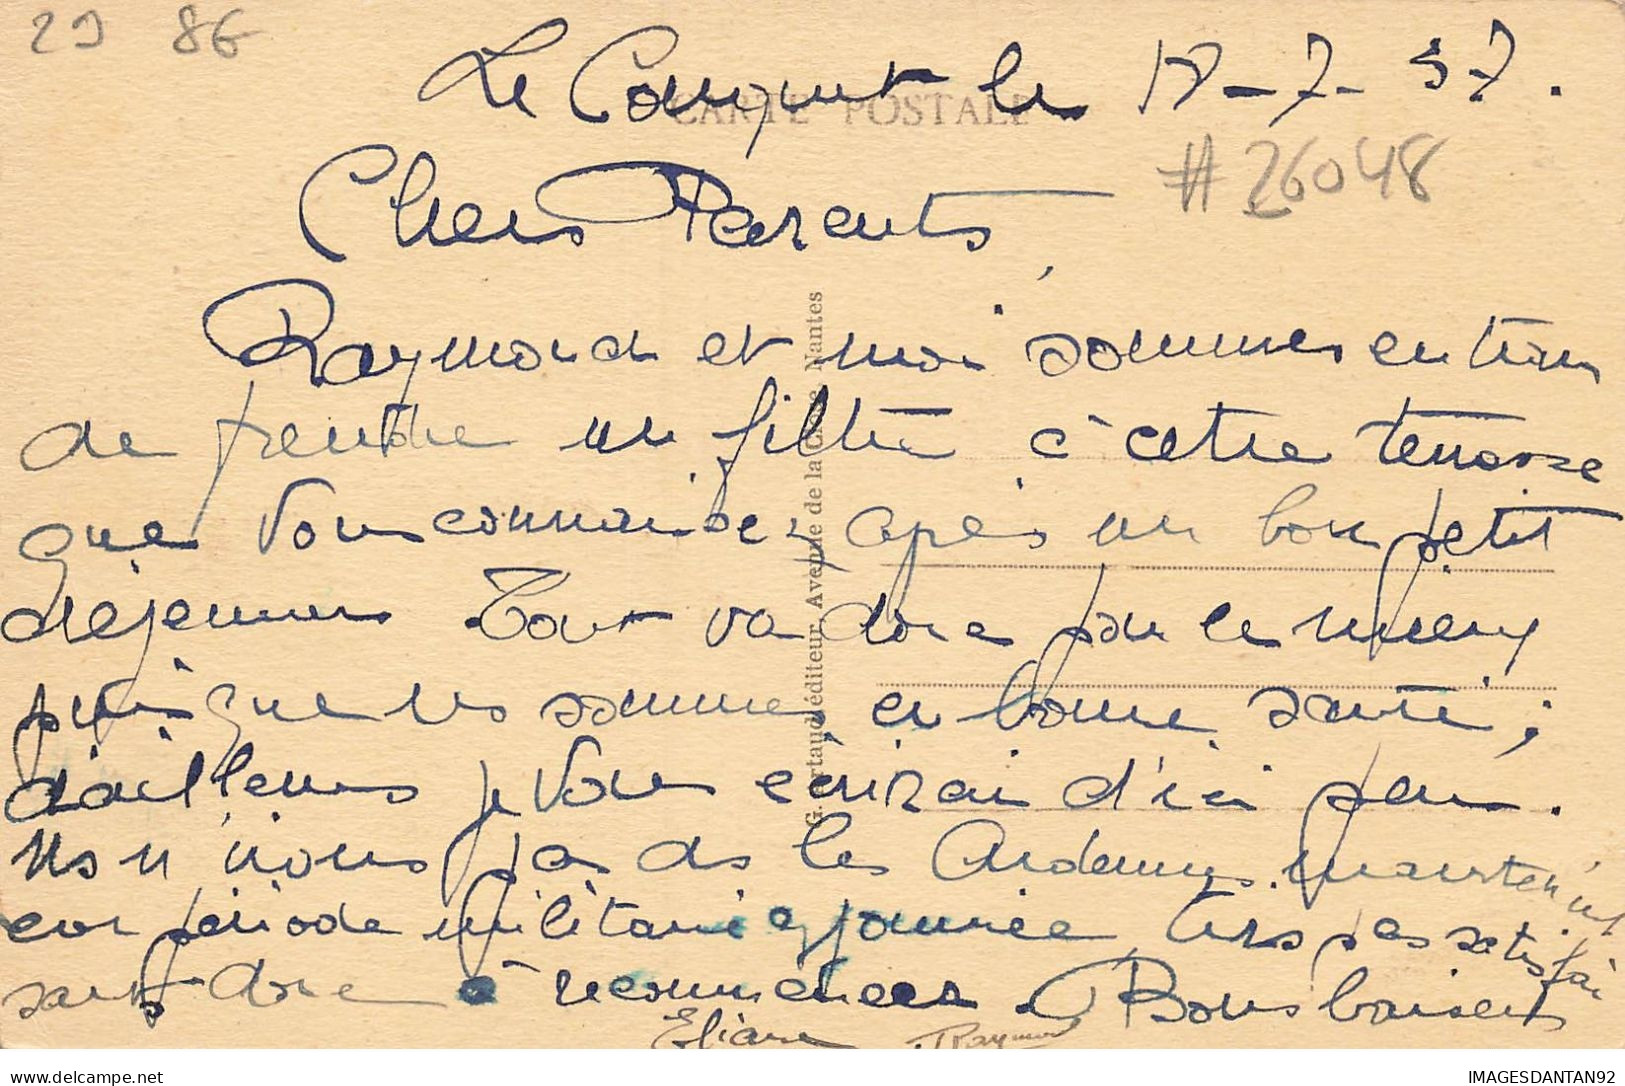 29 86
Le Conquet le 18-7-37.
CARTE POSTALE
#26048
Chers Parents,
Raymond et moi sommes en train
de prendre un filtre à cette terrasse
que vous connaissez, après un bon petit
déjeuner Tout va donc pour le mieux
puisque ns sommes en bonne santé;
d'ailleurs je vous écrirai d'ici peu.
Ns n' pas ds les Ardennes maintenant
car période militaire journée très pas satisfai
sante donc à recommencer. Bons baisers
Eliane Raymond
G. Artaud éditeur, Avenue de la Close Nantes
delcampe.net
IMAGESDANTAN92